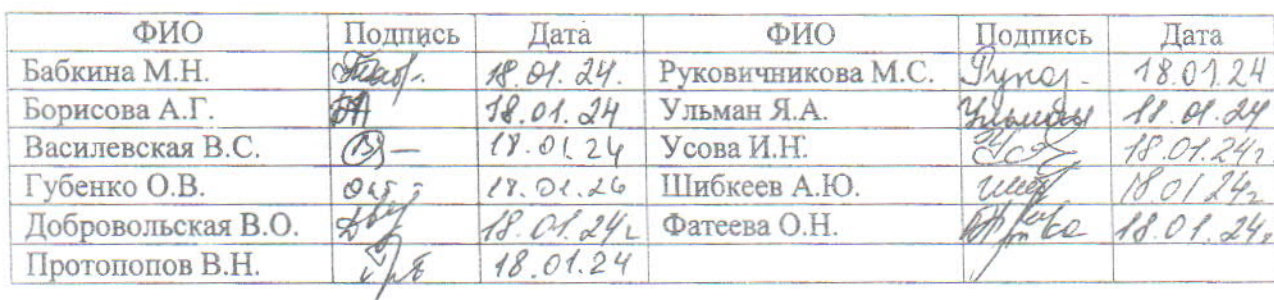 ФИО Подпись Дата ФИО Подпись Дата
Бабкина М.Н. 18.01.24. Руковичникова М.С. Рукоч- 18.01.24
Борисова А.Г. 18.01.24 Ульман Я.А. 18.01.24
Василевская В.С. 18.01.24 Усова И.Н. 18.01.24г
Губенко О.В. Шибкеев А.Ю. 18.01.24г
Добровольская В.О. 18.01.24г Фатеева О.Н. 18.01.24г
Протопопов В.Н. 18.01.24